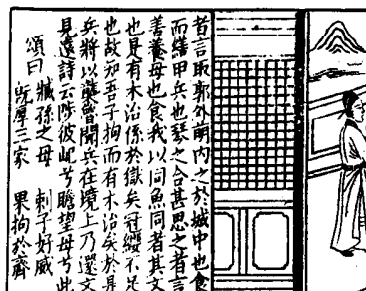 者言取郭外萌內之於城中也食
而繕甲兵也琴之合甚思之者言
善養母也食我以同魚同者其文
也是有木治係於獄矣冠纓不足
也故知吾子拘而有木治矣於是
兵將以襲魯聞兵在境上乃還文
見遠詩云陟彼屺兮瞻望母兮此
頌曰 臧孫之母 刺子好威
既厚三家 果拘於齊